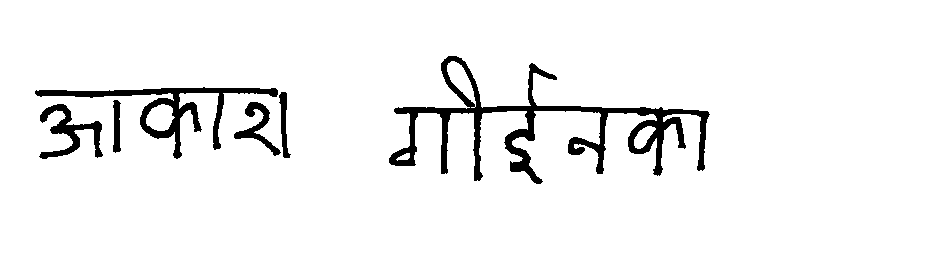 आकाश गीईनका